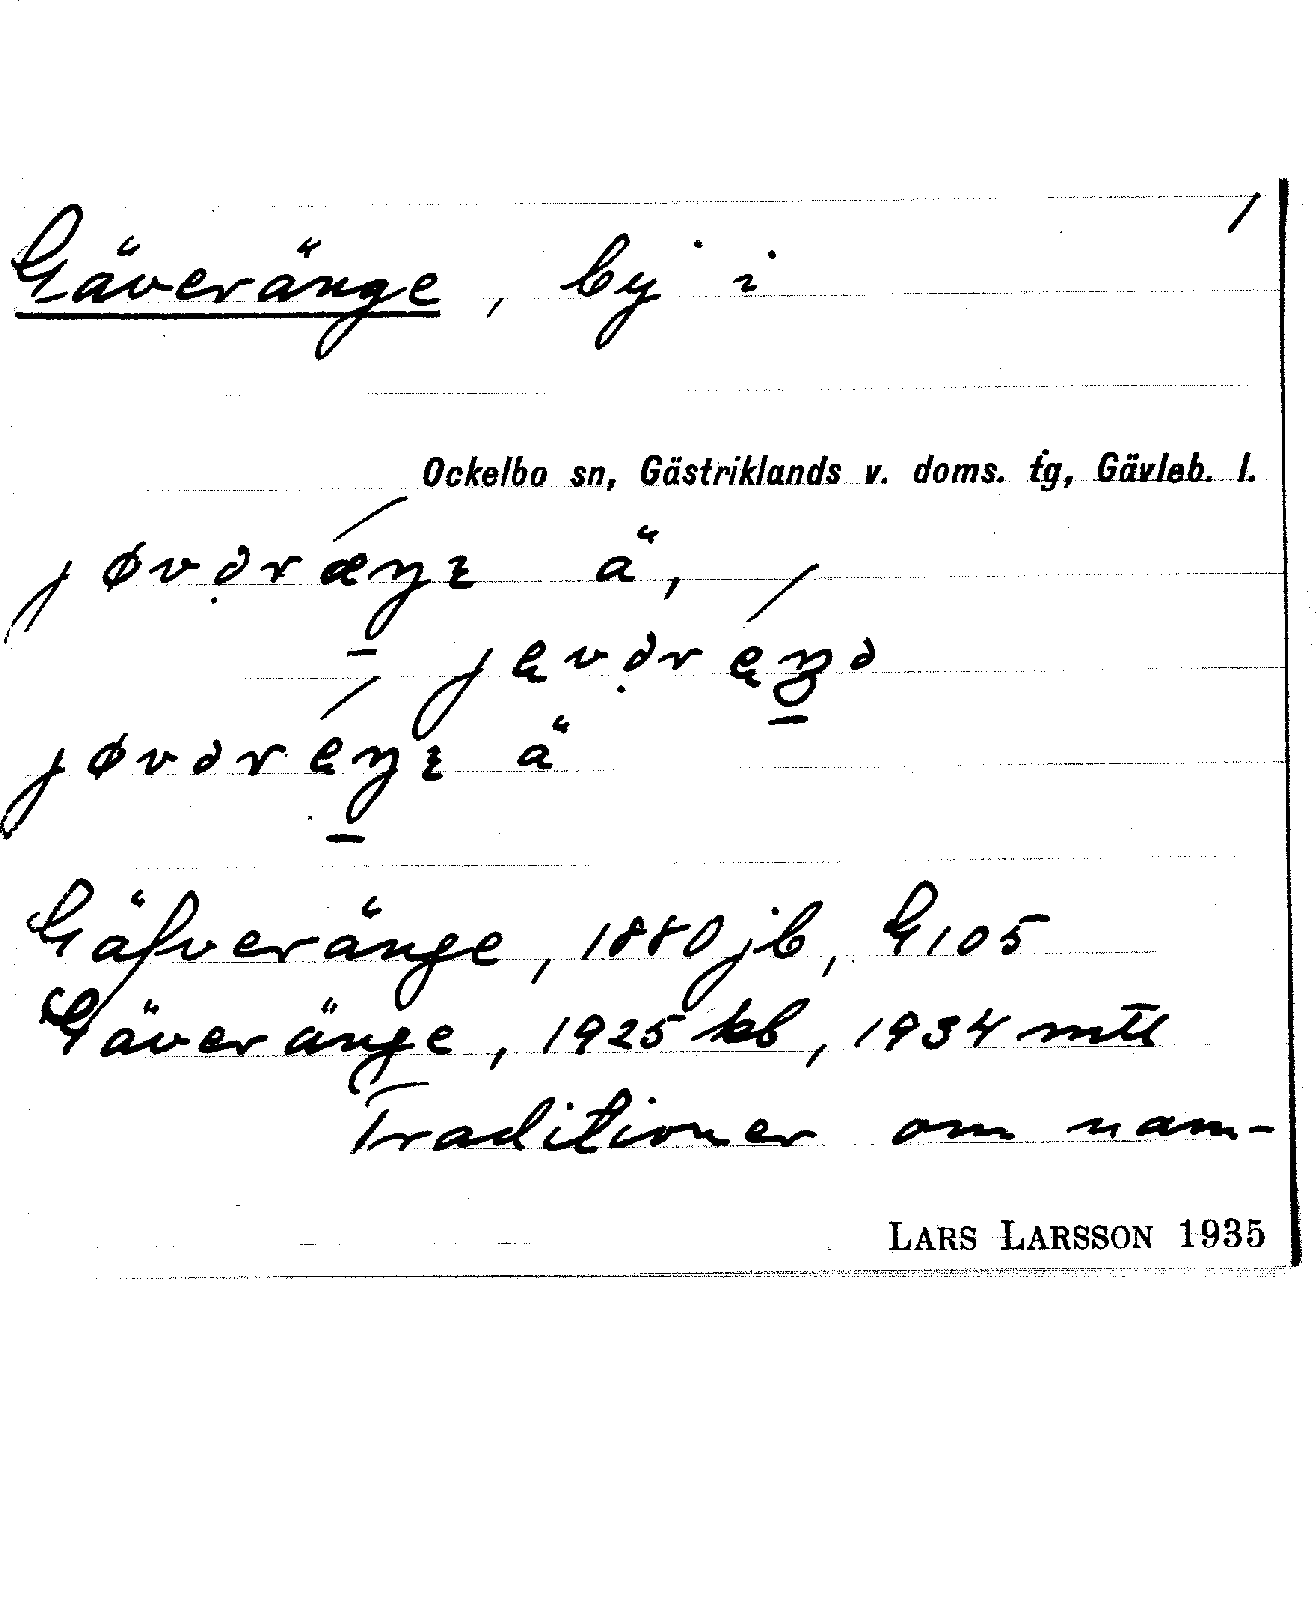 /
Gäveränge, by i
Ockelbo sn, Gästriklands v. doms. tg, Gävleb. l.
jøvəræŋɛ ä,
jevəreŋə
jøvəreŋɛ ä
Gäfveränge, 1880 jb, G105
Gäveränge, 1925 kb, 1934 mtl
Traditioner om nam-
LARS LARSSON 1935